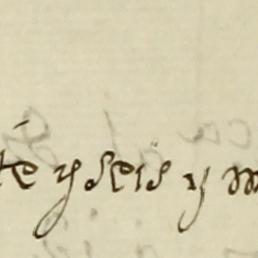 te y seis y m